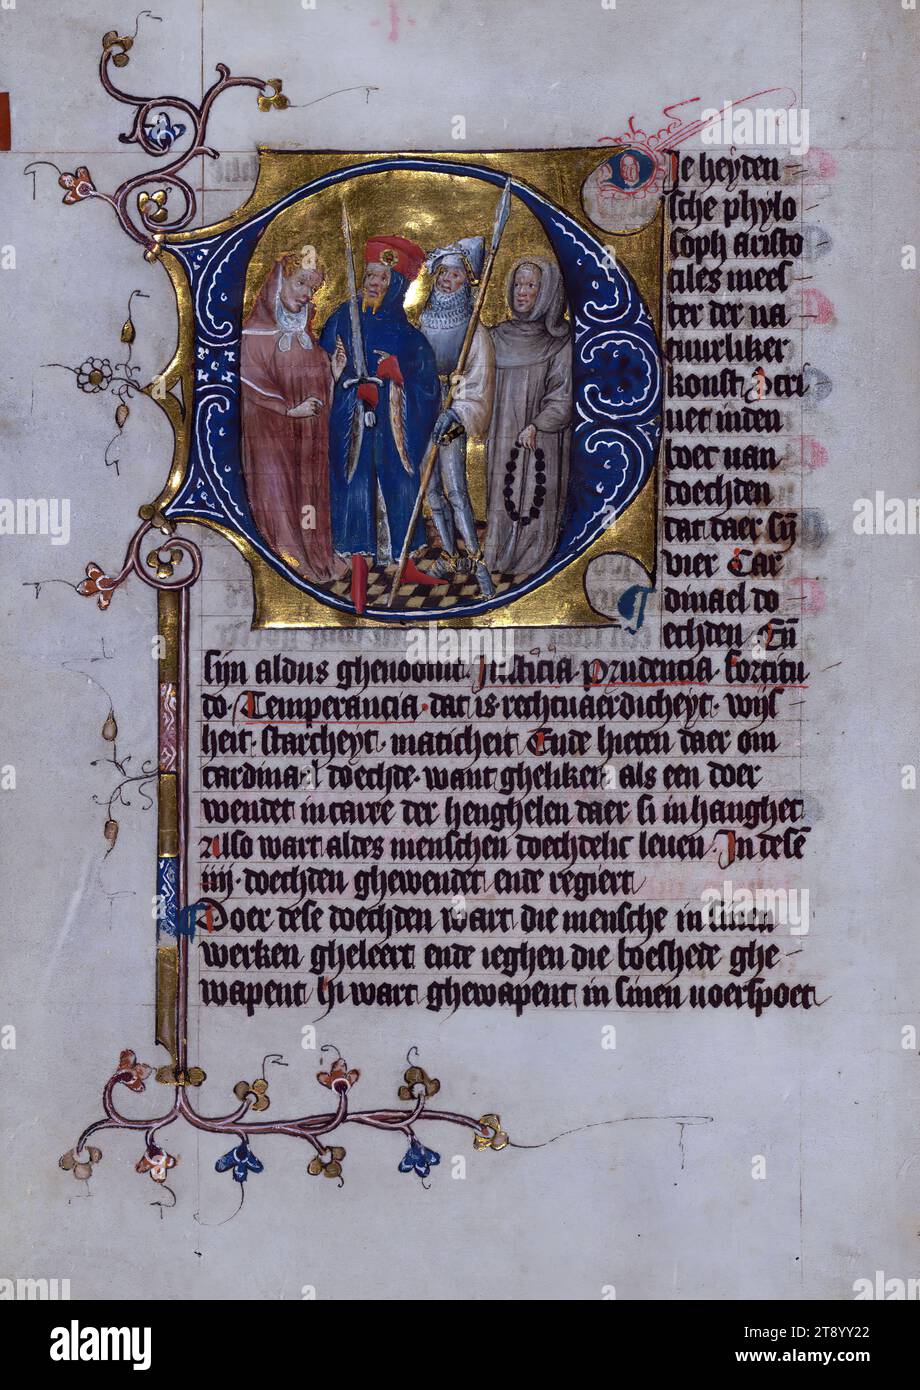 Die heyden
sche phylo
soph aristo
tiles mees
ter der na
tuurliker
konst scri
uet inden
boec uan
doechden
dat daer syn
vier Car
dinael do
echden En
sijn aldus ghenoomt Justicia Prudencia fortitu
do Temperancia dat is rechtuaerdicheyt wijs
heit starcheyt maticheit Ende hieten daer om
cardinael doechde want gheliker als een doer
wendet in carre der henghelen daer si in hanghet
Also wart altes menschen doechdelic leuen In dese
iiij doechden ghewendet ende regiert
Ouer dese doechden wart die mensche in sinen
werken gheleert ende ieghen die boesheit ghe
wapent hi wart ghewapent in sinen uoerspoet
alamy
Image ID: 2T8YY22
www.alamy.com